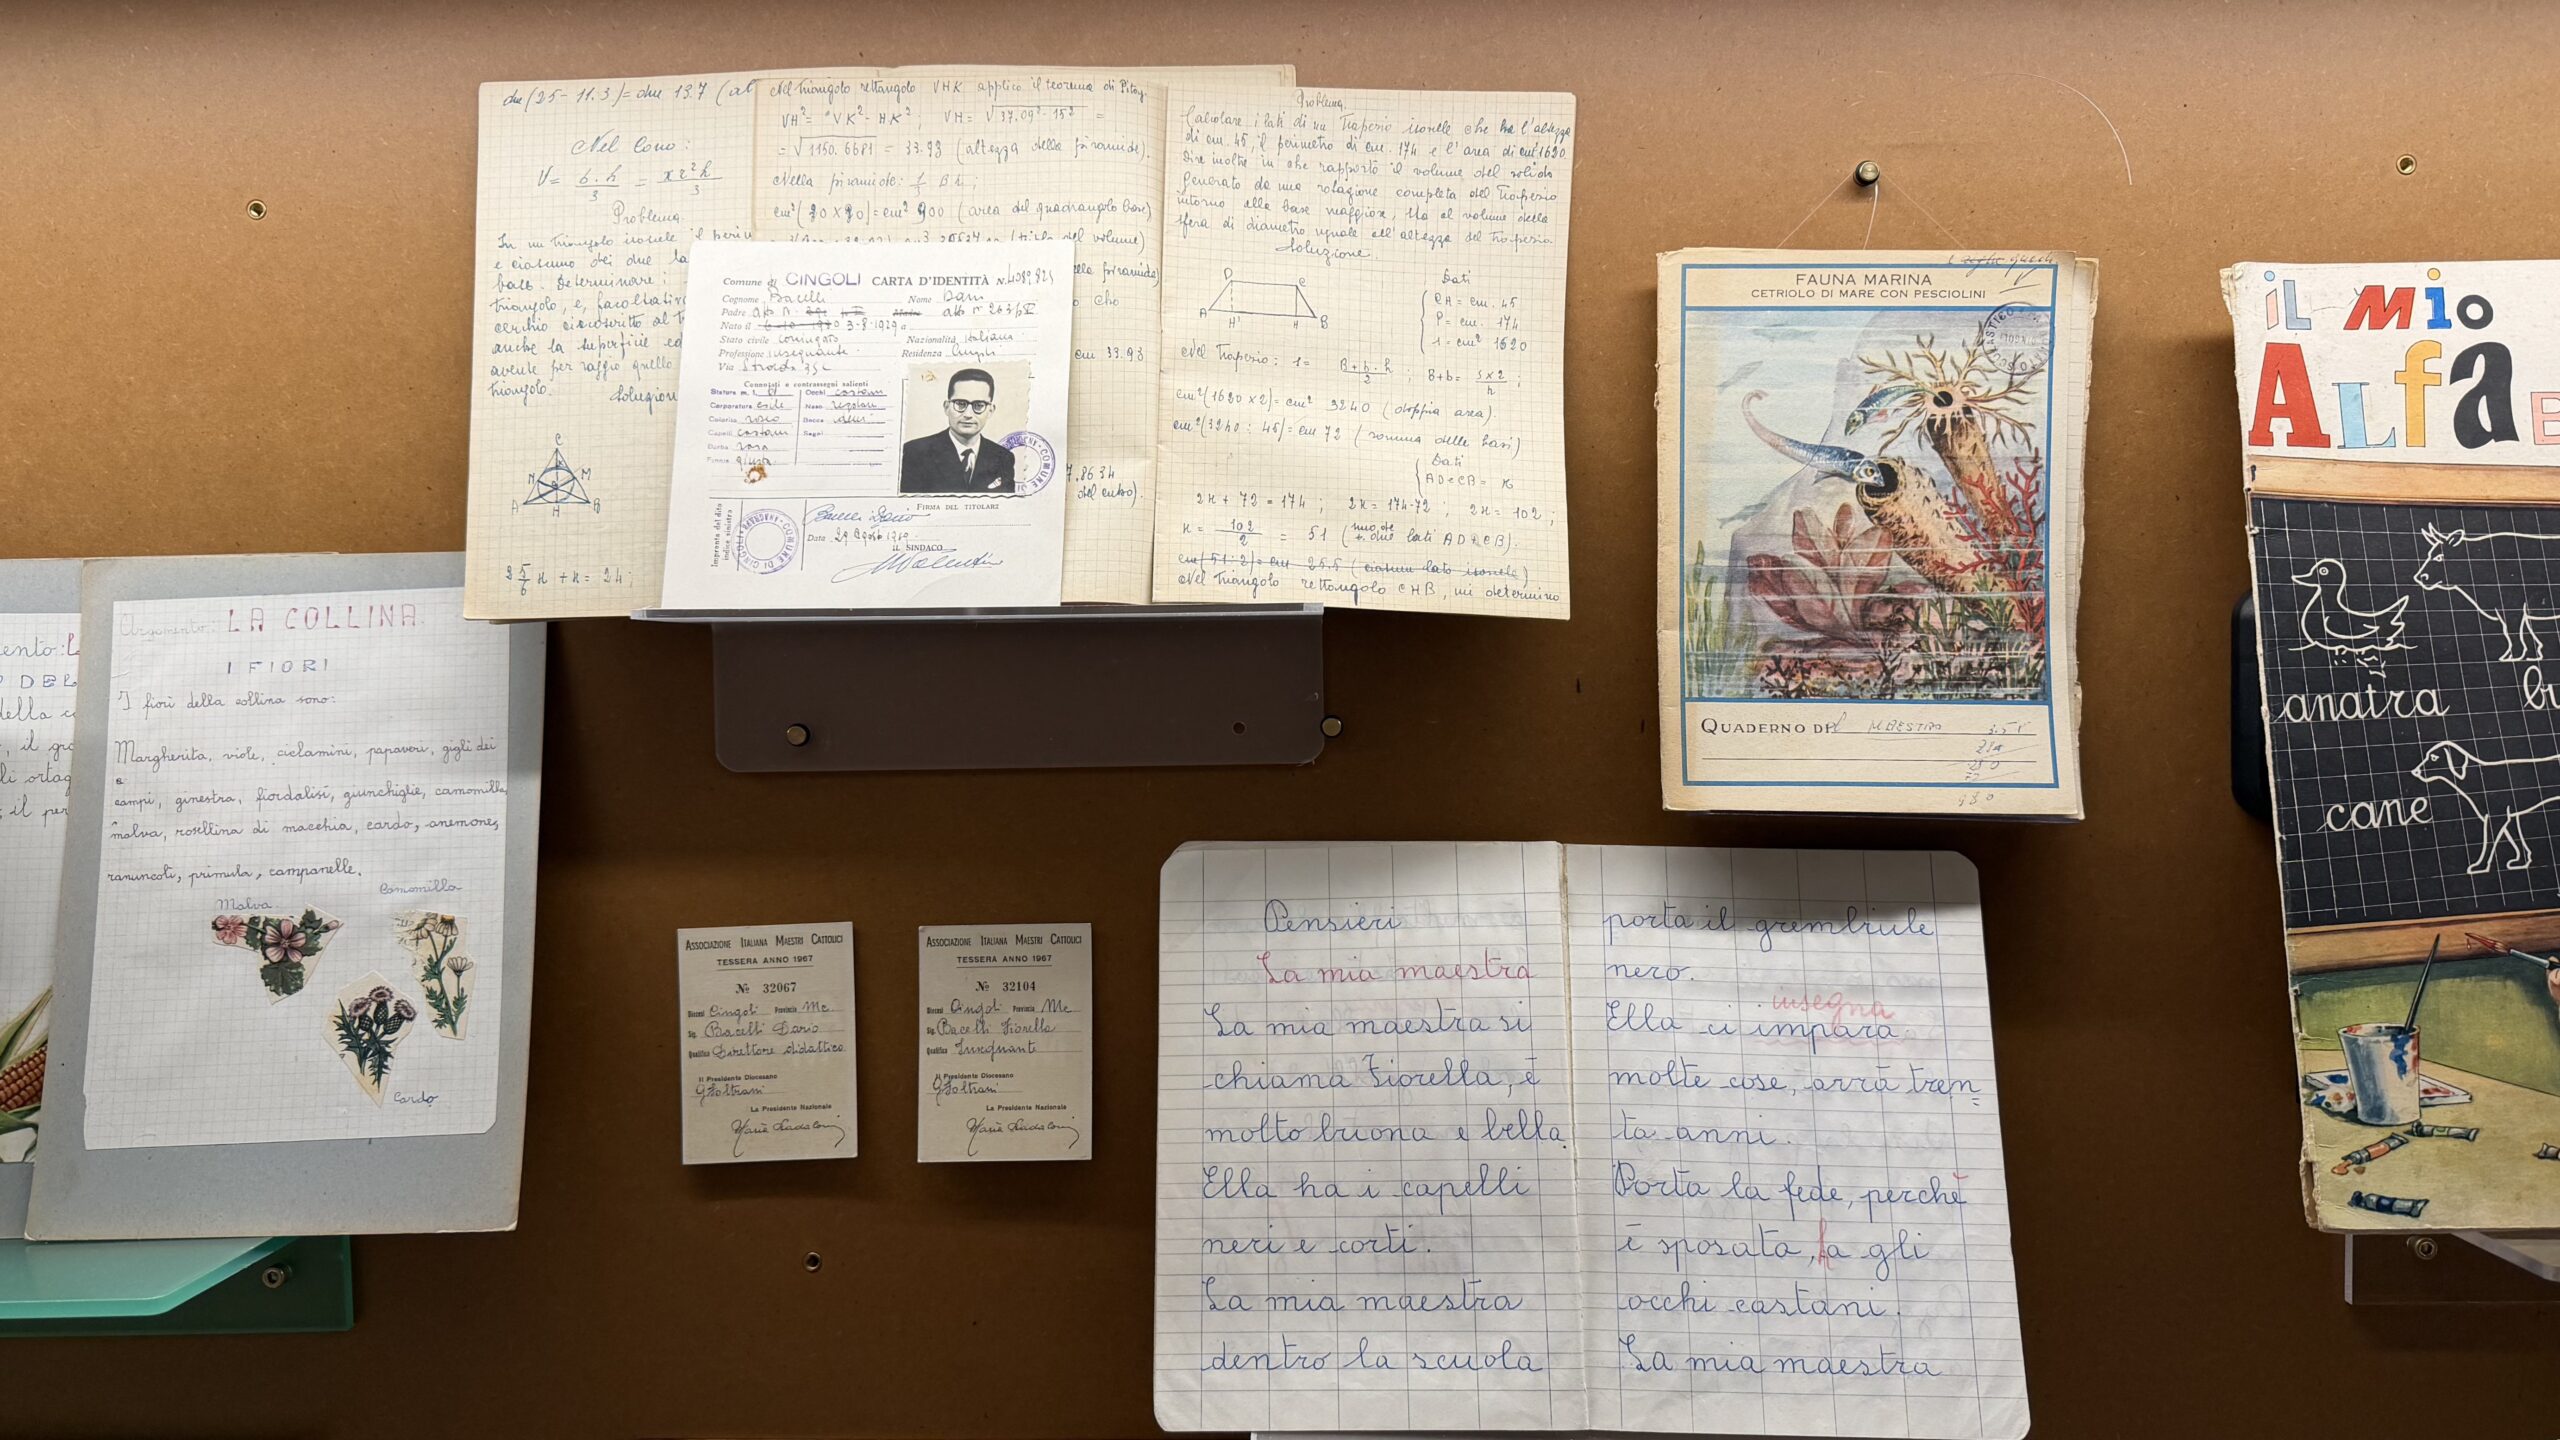 due (25 - 11.3) = due 13.7 (al
Nel Cono:
V = b.h/3 = πr²h/3
Problema.
In un triangolo isoscele il peri
e ciascuno dei due la
base. Determinare:
triangolo, e, facoltativo
cerchio circoscritto al t
anche la superficie ed
avente per raggio quello
triangolo.
Soluzione
C
N M
A H B
3 5/6 x + x = 24;
Nel triangolo rettangolo VHK applico il teorema di Pitag.
VH² = VK² - HK² ; VH = √37.09² - 15² =
= √1150.6681 = 33.93 (altezza della piramide).
Nella piramide: 1/3 B h ;
cm²(30 x 30) = cm² 900 (area del quadrangolo base)
del volume)
della piramide)
cho
cm 33.93
7.8634
del cubo).
Problema.
Calcolare i lati di un Trapezio isoscele che ha l'altezza
di cm. 45, il perimetro di cm. 174 e l'area di cm² 1620.
Dire inoltre in che rapporto il volume del solido
generato da una rotazione completa del Trapezio
intorno alla base maggiore, sta al volume della
sfera di diametro uguale all'altezza del Trapezio.
Soluzione.
D C
A H' H B
Dati
CH = cm. 45
P = cm. 174
S = cm² 1620
Nel Trapezio: S = B+b . h / 2 ; B+b = S x 2 / h ;
cm²(1620 x 2) = cm² 3240 (doppia area).
cm²(3240 : 45) = cm 72 (somma delle basi)
Dati
AD e CB = x
2x + 72 = 174 ; 2x = 174-72 ; 2x = 102 ;
x = 102/2 = 51 (uno dei due lati AD e CB).
cm(51:2) = cm 25.5 (ciascun lato isoscele)
Nel triangolo rettangolo CHB, mi determino
Comune di CINGOLI CARTA D'IDENTITÀ N. 4089825
Cognome Bacelli Nome Dario
Padre
Nato il 3-8-1929 a
Stato civile coniugato Nazionalità italiana
Professione insegnante Residenza Cingoli
Via Strada 35
Connotati e contrassegni salienti
Statura m. Occhi castani
Corporatura esile Naso regolare
Colorito roseo Bocca
Capelli castani Segni
Barba rasa
Fronte giusta
Impronta del dito
indice sinistro
FIRMA DEL TITOLARE
Bacelli Dario
Data 29 Agosto 1960
IL SINDACO
COMUNE DI CINGOLI
FAUNA MARINA
CETRIOLO DI MARE CON PESCIOLINI
QUADERNO DEl MAESTRO
iL Mio
ALfaB
anatra
bu
cane
Argomento: LA COLLINA.
I FIORI
I fiori della collina sono:
Margherita, viole, ciclamini, papaveri, gigli dei
campi, ginestra, fiordalisi, giunchiglie, camomilla,
malva, rosellina di macchia, cardo, anemone,
ranuncoli, primula, campanelle.
Camomilla
Malva
Cardo
ento:
DEL
della c
, il gr
li ortag
, il per
ASSOCIAZIONE ITALIANA MAESTRI CATTOLICI
TESSERA ANNO 1967
№ 32067
Diocesi Cingoli Provincia Mc
Sig. Bacelli Dario
Qualifica Direttore didattico
Il Presidente Diocesano
G Foltrani
La Presidente Nazionale
ASSOCIAZIONE ITALIANA MAESTRI CATTOLICI
TESSERA ANNO 1967
№ 32104
Diocesi Cingoli Provincia Mc
Sig. Bacelli Fiorella
Qualifica Insegnante
Il Presidente Diocesano
G Foltrani
La Presidente Nazionale
Pensieri
La mia maestra
La mia maestra si
chiama Fiorella, è
molto buona e bella.
Ella ha i capelli
neri e corti.
La mia maestra
dentro la scuola
porta il grembiule
nero.
insegna
Ella ci impara
molte cose, avrà tren=
ta anni.
Porta la fede, perchè
è sposata, ha gli
occhi castani.
La mia maestra